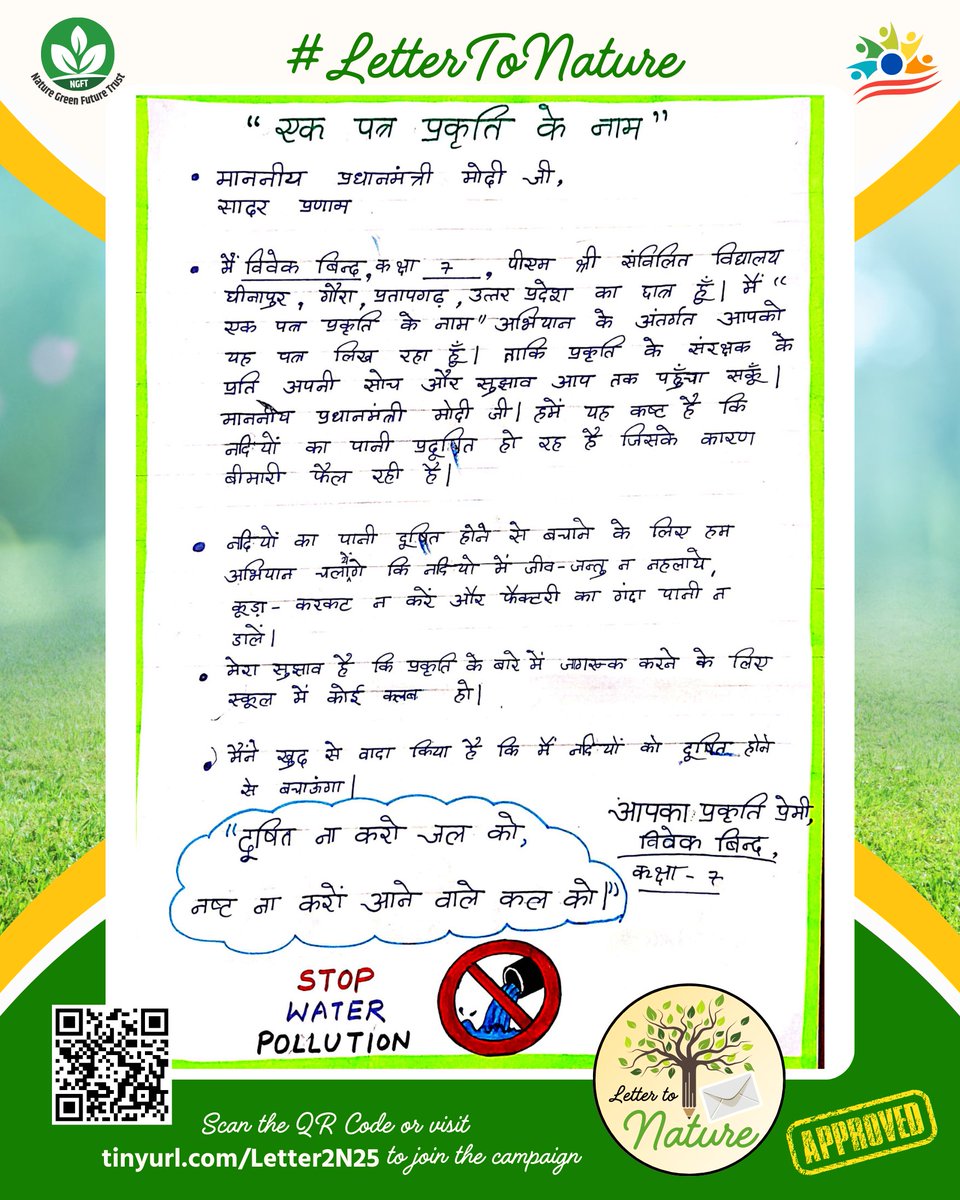 #LetterToNature
NGFT
Nature Green Future Trust
“एक पत्र प्रकृति के नाम”
• माननीय प्रधानमंत्री मोदी जी,
सादर प्रणाम
• मैं विवेक बिन्द, कक्षा 7, पीएम श्री संविलित विद्यालय
घीनापुर, गौरा, प्रतापगढ़, उत्तर प्रदेश का छात्र हूँ। मैं “
एक पत्र प्रकृति के नाम” अभियान के अंतर्गत आपको
यह पत्र लिख रहा हूँ। ताकि प्रकृति के संरक्षक के
प्रति अपनी सोच और सुझाव आप तक पहुँचा सकूँ।
माननीय प्रधानमंत्री मोदी जी। हमें यह कष्ट है कि
नदियों का पानी प्रदूषित हो रह है जिसके कारण
बीमारी फैल रही है।
• नदियों का पानी दूषित होने से बचाने के लिए हम
अभियान चलाऐंगे कि नदियो में जीव-जन्तु न नहलाये,
कूड़ा-करकट न करें और फैक्टरी का गंदा पानी न
डालें।
• मेरा सुझाव है कि प्रकृति के बारे में जागरूक करने के लिए
स्कूल में कोई क्लब हो।
• मैंने खुद से वादा किया है कि मैं नदियों को दूषित होने
से बचाऊंगा।
आपका प्रकृति प्रेमी,
विवेक बिन्द,
कक्षा - 7
“दूषित ना करो जल को,
नष्ट ना करों आने वाले कल को।”
STOP
WATER
POLLUTION
Letter to
Nature
APPROVED
Scan the QR Code or visit
tinyurl.com/Letter2N25 to join the campaign